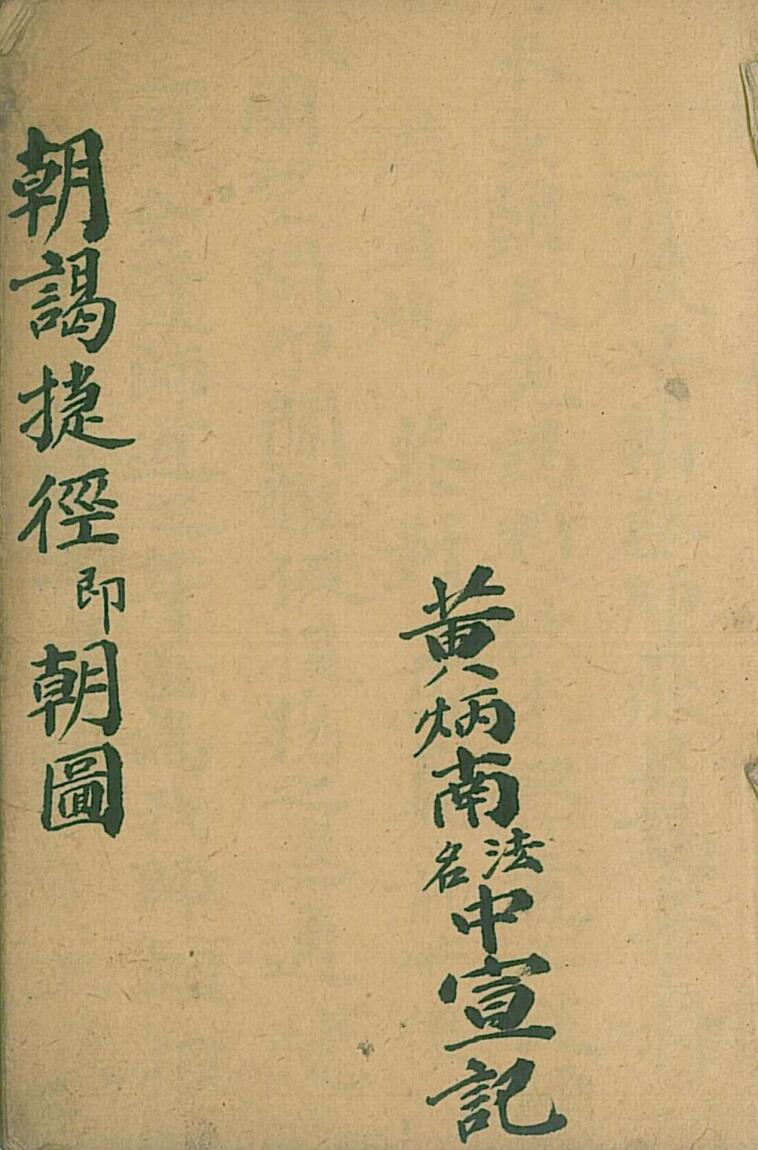 黄炳南法名中宣記
朝謁捷徑即朝圖